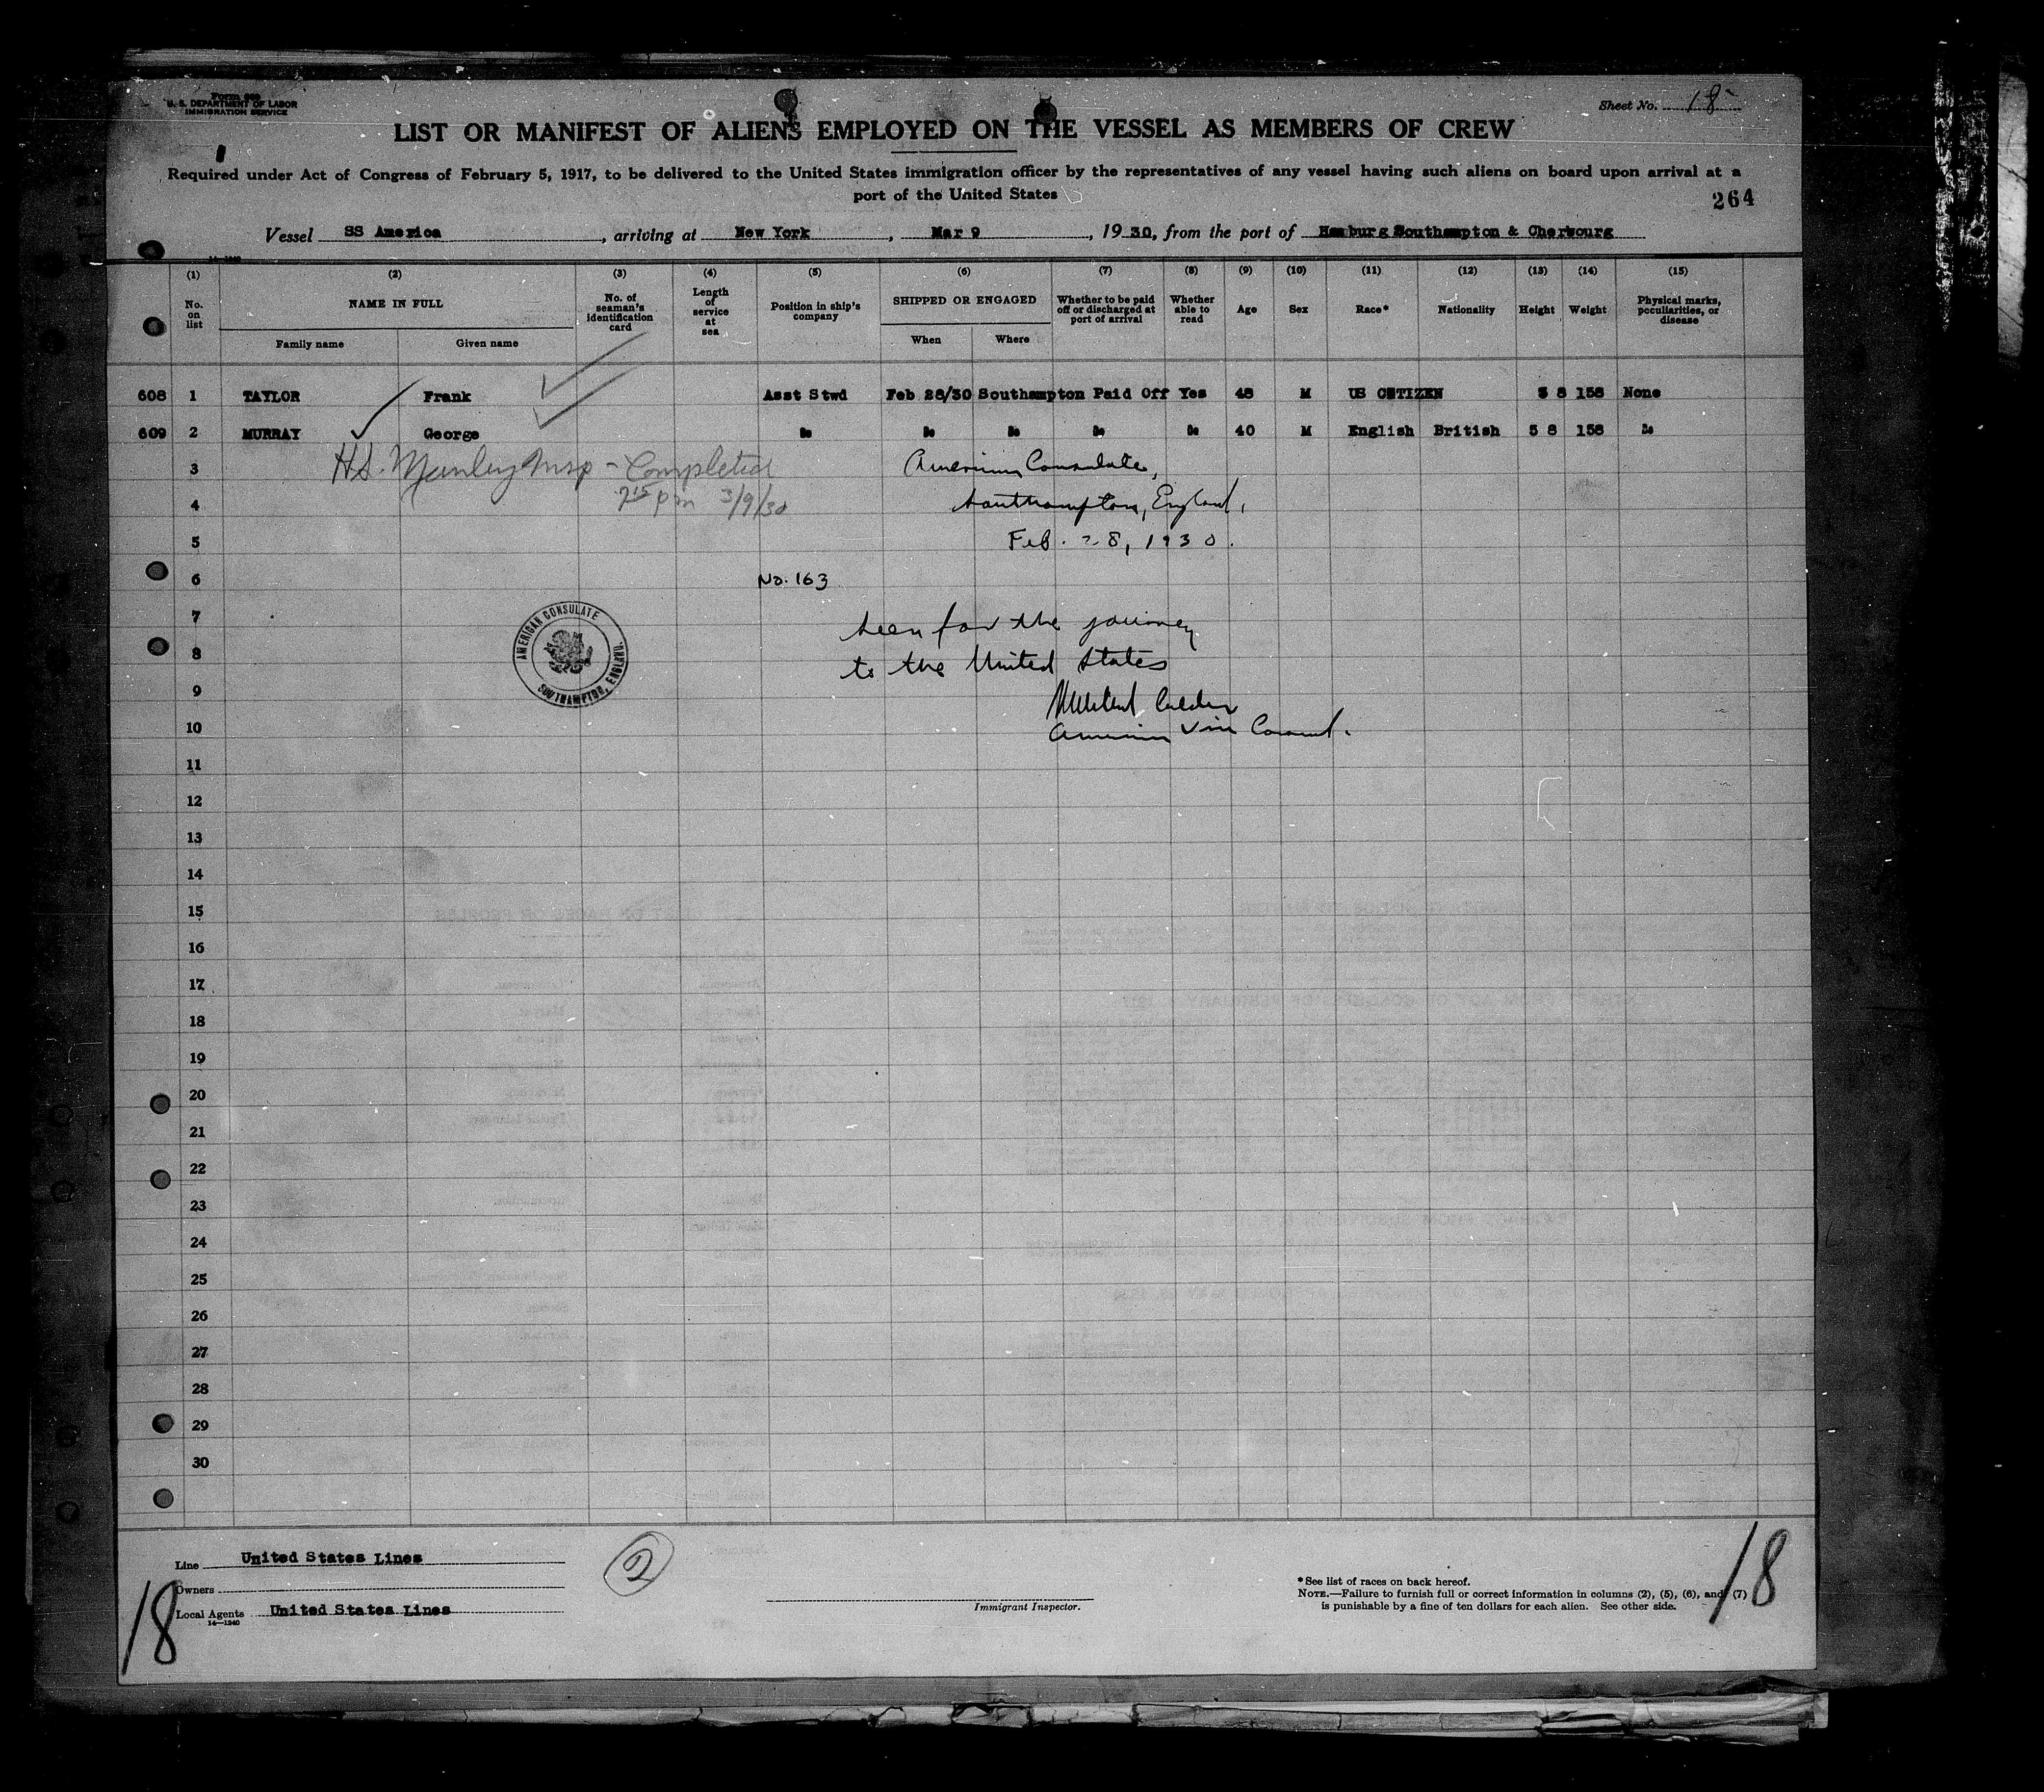 Form 680
U. S. DEPARTMENT OF LABOR
IMMIGRATION SERVICE
Sheet No. 18
LIST OR MANIFEST OF ALIENS EMPLOYED ON THE VESSEL AS MEMBERS OF CREW
Required under Act of Congress of February 5, 1917, to be delivered to the United States immigration officer by the representatives of any vessel having such aliens on board upon arrival at a
port of the United States
264
Vessel SS America, arriving at New York, Mar 9, 1930, from the port of Hamburg Southampton & Cherbourg
14-1240
(1) (2) (3) (4) (5) (6) (7) (8) (9) (10) (11) (12) (13) (14) (15)
No. on list NAME IN FULL No. of seaman's identification card Length of service at sea Position in ship's company SHIPPED OR ENGAGED Whether to be paid off or discharged at port of arrival Whether able to read Age Sex Race* Nationality Height Weight Physical marks, peculiarities, or disease
Family name Given name When Where
608 1 TAYLOR Frank Asst Stwd Feb 28/30 Southampton Paid Off Yes 48 M US CITIZEN 5 8 158 None
609 2 MURRAY George Do Do Do Do Do 40 M English British 5 8 158 Do
3 H.S. Manley Insp - Completed American Consulate,
4 7 15 pm 3/9/30 Southampton, England,
5 Feb. 28, 1930.
6 No. 163
7 Seen for the journey
8 to the United States
AMERICAN CONSULATE
SOUTHAMPTON, ENGLAND.
9
10 American Vice Consul.
11
12
13
14
15
16
17
18
19
20
21
22
23
24
25
26
27
28
29
30
Line United States Lines
2
Owners
Local Agents United States Lines
14—1240
Immigrant Inspector.
*See list of races on back hereof.
NOTE.—Failure to furnish full or correct information in columns (2), (5), (6), and (7)
is punishable by a fine of ten dollars for each alien. See other side.
18
18